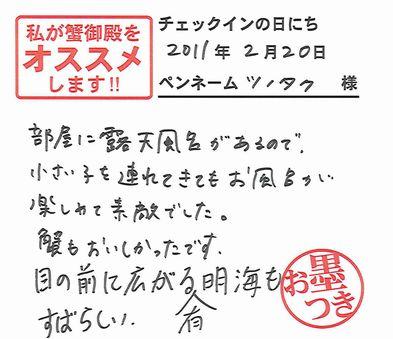 私が蟹御殿を
オススメ
します!!
チェックインの日にち
2011年 2月20日
ペンネーム ツノタク 様
部屋に露天風呂があるので、
小さい子を連れてきてもお風呂が
楽しめて素敵でした。
蟹もおいしかったです。
目の前に広がる有明海も
すばらしい。
お墨つき